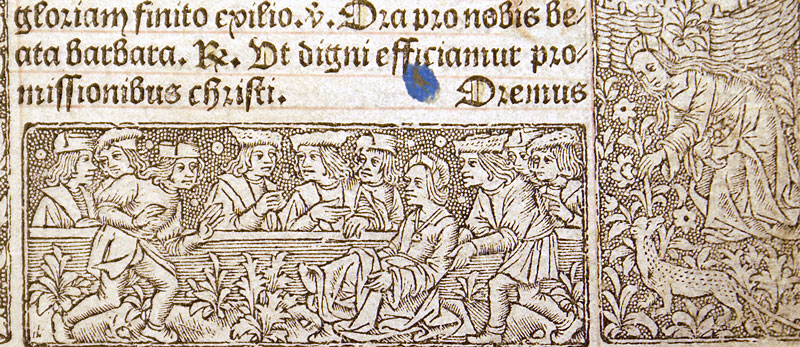 gloriam finito exilio. ℣. Ora pro nobis be/
ata barbara. ℟. Vt digni efficiamur pro/
missionibus christi. Oremus